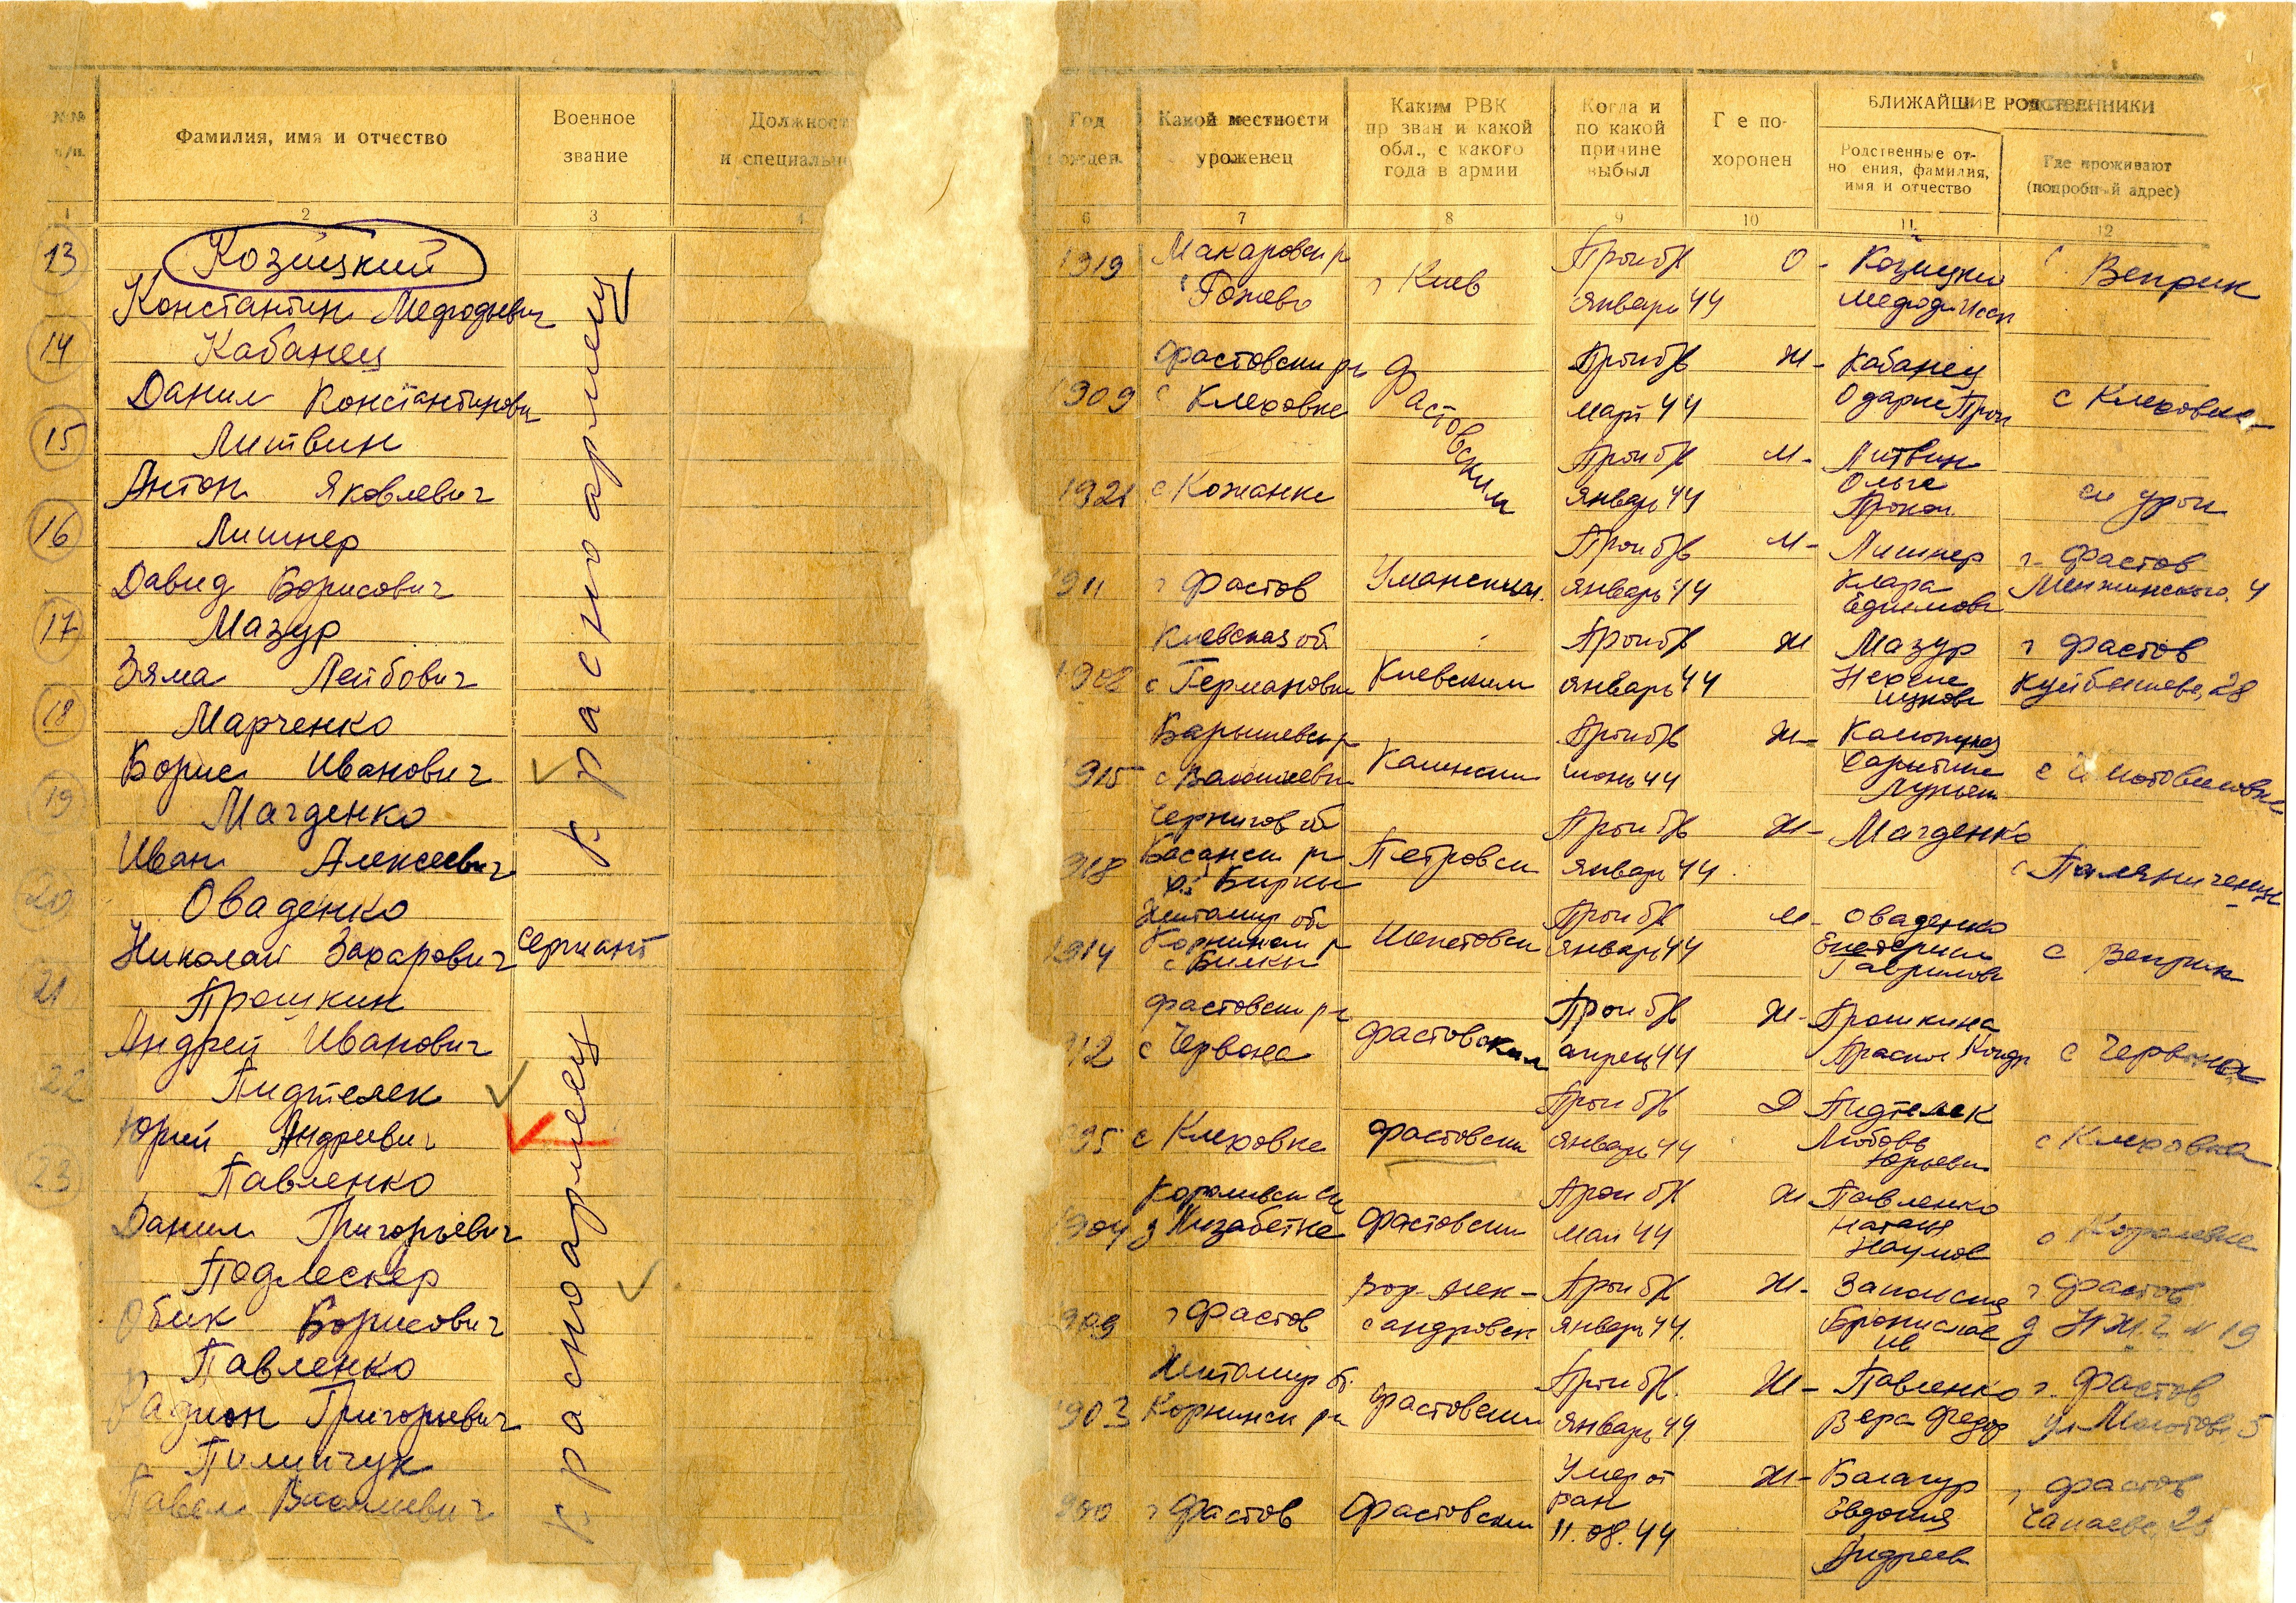 №№ п/п.
Фамилия, имя и отчество
Военное звание
Должнос
и специальн
Год
ожден.
Какой местности уроженец
Каким РВК
пр зван и какой
обл., с какого
года в армии
Когда и
по какой
причине
выбыл
Г е по-
хоронен
БЛИЖАЙШИЕ РОДСТВЕННИКИ
Родственные от-
но ения, фамилия,
имя и отчество
Где проживают
(подробный адрес)
1 2 3 4 6 7 8 9 10 11 12
13 Козицкий
Константин Мефодьевич
1919
Макаровск р
Рожево
г Киев
Проп б/в
январь 44
О - Козицки
Мефоди
с Веприк
14 Кабанец
Данил Константинович
1909
Фастовски рн
с Клеховке
Фастовским
Проп б/в
март 44
Ж - Кабанец
Одарке Проп
с Клеховка
15 Литвин
Антон Яковлевич
1921
с Кожанке
Проп б/в
январь 44
М - Литвин
Ольге
Прокоп.
16 Лишнер
Давид Борисович
911
г Фастов
Уманским.
Проп б/в
январь 44
М - Лишнер
Клара
Ефимовн
г. Фастов
Менжинского, 4
17 Мазур
Зяма Лейбович
1908
Киевская об
с Германовк
Киевским
Проп б/в
январь 44
Ж Мазур
г Фастов
Куйбышева, 28
18 Марченко
Борис Иванович
915
Барышевск р
Проп б/в
июнь 44
Ж -
19 Магденко
Иван Алексеевич
918
Чернигов об
Басанск рн
Бирки
Петровск
Проп б/в
январь 44
Ж - Магденко
20 Оваденко
Николай Захарович
сержант
1914
Житомир об
Корнинск р
с Билки
Проп б/в
январь 44
М - Оваденко
Екатерин
Гаврилов
с Веприк
21 Прошкин
Андрей Иванович
912
Фастовски рн
с Червона
Фастовским
Проп б/в
апрель 44
Ж - Прошкина
с Червона
22 Пидтелек
Юрий Андреевич
895
с Клеховке
Фастовски
Проп б/в
январь 44
Д Пидтелек
Любовь
Юрьевн
с Клеховка
23 Павленко
Данил Григорьевич
1904
Королевск с/с
д Лизабетке
Фастовски
Проп б/в
май 44
Ж Павленко
Наталя
Наумов
с Королевке
Подлескер
Обик Борисович
909
г Фастов
Вор-Алек-
сандровск
Проп б/в
январь 44.
Ж -
Бронислав
Ив
г Фастов
19
Павленко
Радион Григорьевич
1903
Житомир об.
Корнинск рн
Фастовским
Проп б/в.
январь 44
Ж - Павленко
Вера Федор
г. Фастов
ул Молотова 5
Пилипчук
Павел Васильевич
900
г Фастов
Фастовским
Умер от
ран
11.08.44
Ж - Балагур
Евдокия
Андреев
г Фастов
Чапаева,
к расноармеец
к расноармеец